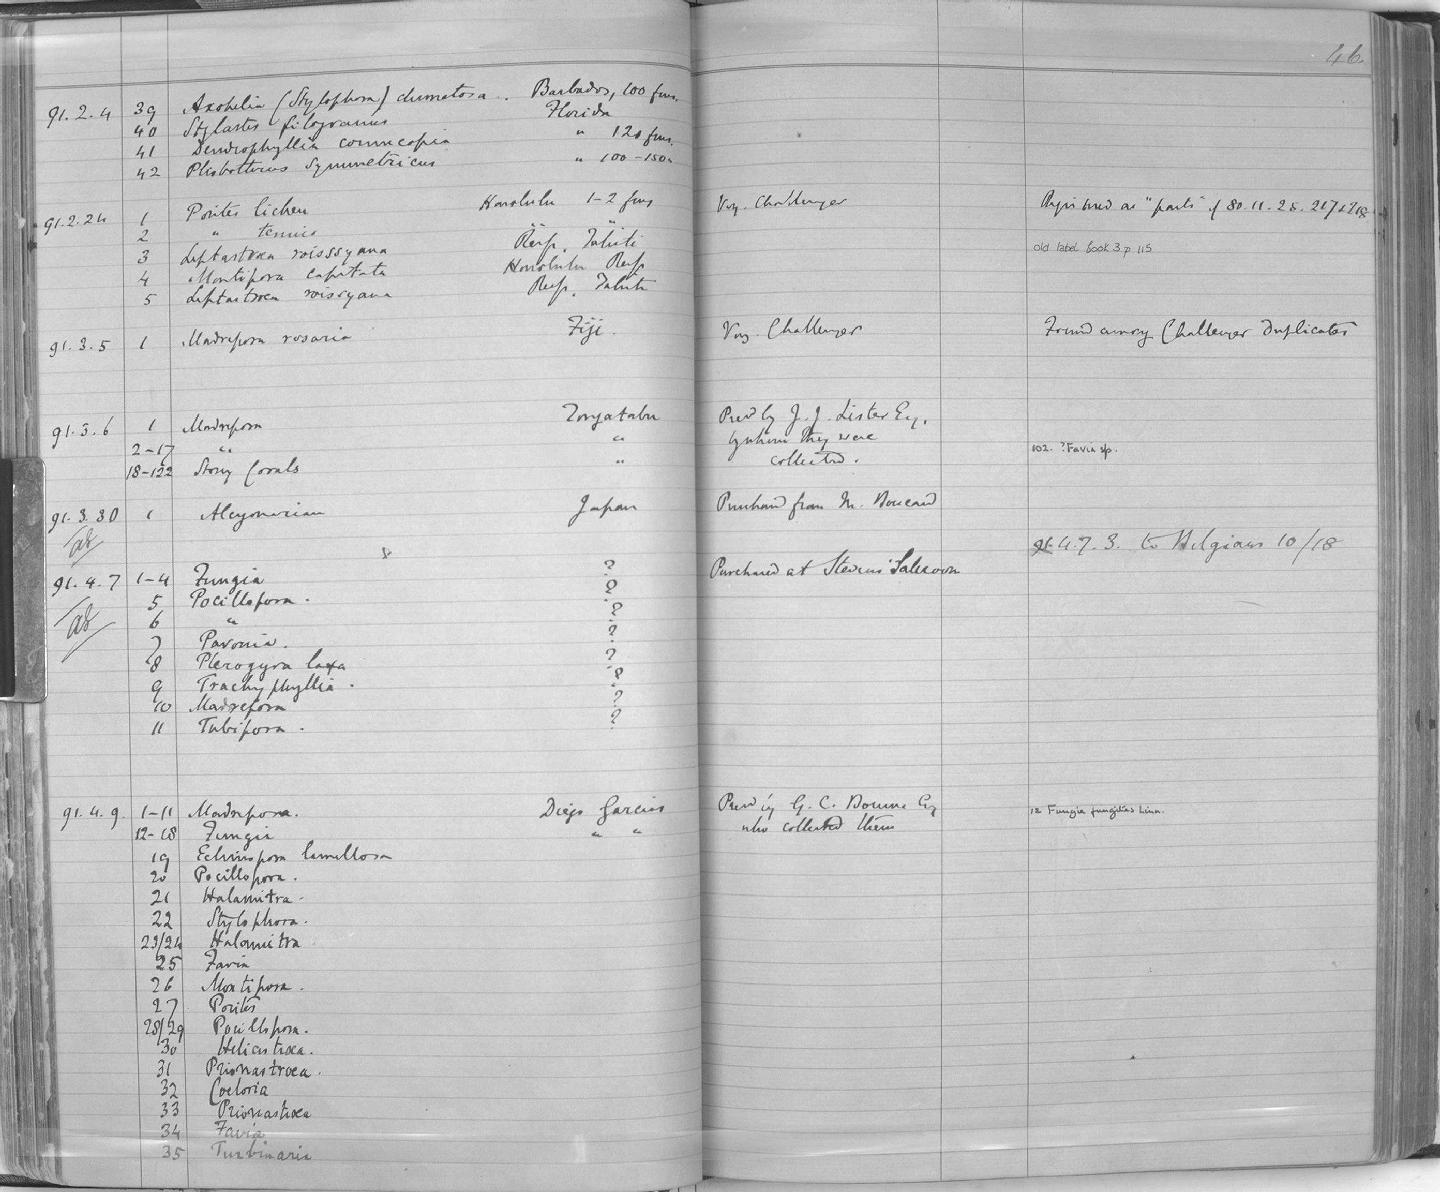 46
91.2.4 39 Axohelia (Stylophora) dumetosa. Barbados, 100 fms.
40 Stylaster filogranus Florida
41 Dendrophyllia cornucopia " 120 fms.
42 Pliobothrus symmetricus " 100-150 "
91.2.24 1 Porites lichen Honolulu 1-2 fms Voy. Challenger Registered as "parts" of 80.11.25.
2 " tenuis "
3 Leptastraea roissyana Reefs, Tahiti old label book 3 p 115
4 Montipora capitata Honolulu Reefs
5 Leptastraea roissyana Reefs, Tahiti
91.3.5 1 Madrepora rosaria Fiji. Voy. Challenger Found among Challenger Duplicates
91.3.6 1 Madrepora Tongatabu Pres'd by J. J. Lister Esq.
2-17 " " by whom they were
18-122 Stony Corals " collected. 102. ? Favia sp.
91.3.30 1 Alcyonarian Japan Purchased from M. Boucard
91.4.7.3. to Belgians 10/18
91.4.7 1-4 Fungia ? Purchased at Stevens' Saleroom
5 Pocillopora. ?
6 " ?
7 Pavonia. ?
8 Plerogyra laxa ?
9 Trachyphyllia. ?
10 Madrepora ?
11 Tubipora. ?
91.4.9. 1-11 Madrepora. Diego Garcia Pres'd by G. C. Bourne Esq 12 Fungia fungites Linn.
12-18 Fungia " " who collected them
19 Echinopora lamellosa
20 Pocillopora.
21 Halomitra.
22 Stylophora.
23/24 Halomitra
25 Favia
26 Montipora.
27 Porites
28/29 Pocillopora.
30 Heliastraea.
31 Prionastraea.
32 Coeloria
33 Prionastraea
34 Favia
35 Turbinaria